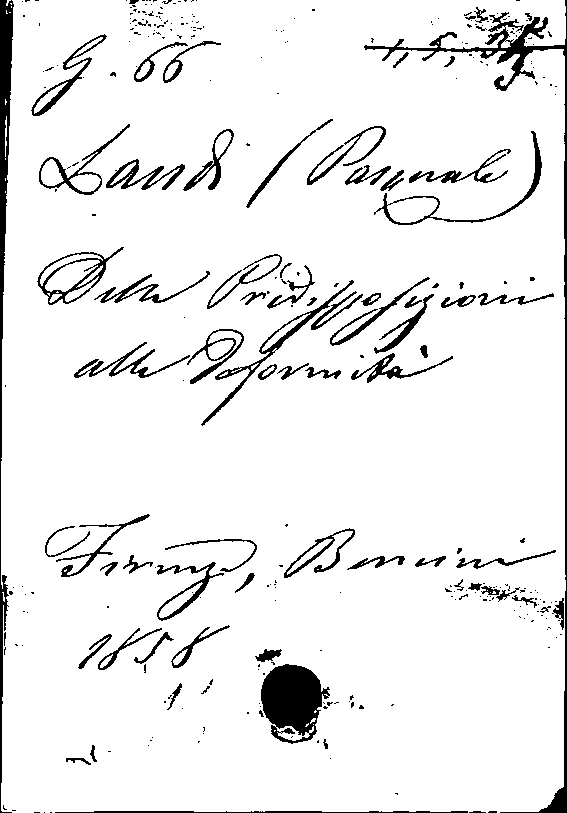 G. 66
Landi (Pasquale)
Delle Predisposizioni
alle Deformità
Firenze, Bencini
1858